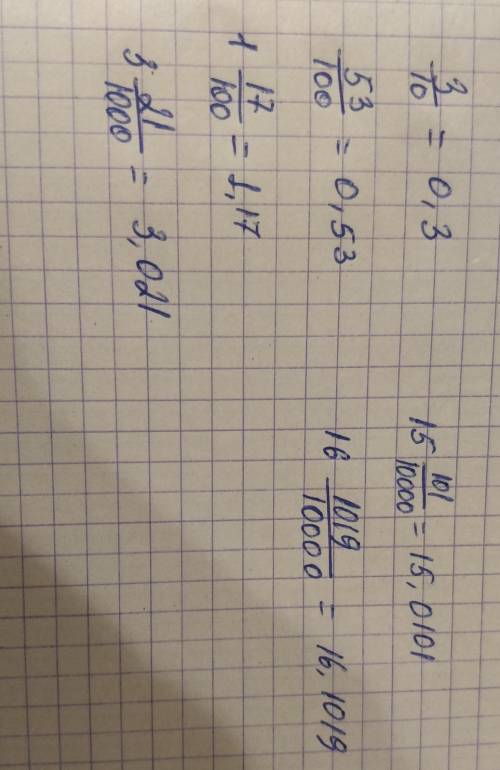 3/10 = 0,3
53/100 = 0,53
1 17/100 = 1,17
3 21/1000 = 3,021
15 101/10000 = 15,0101
16 1019/10000 = 16,1019